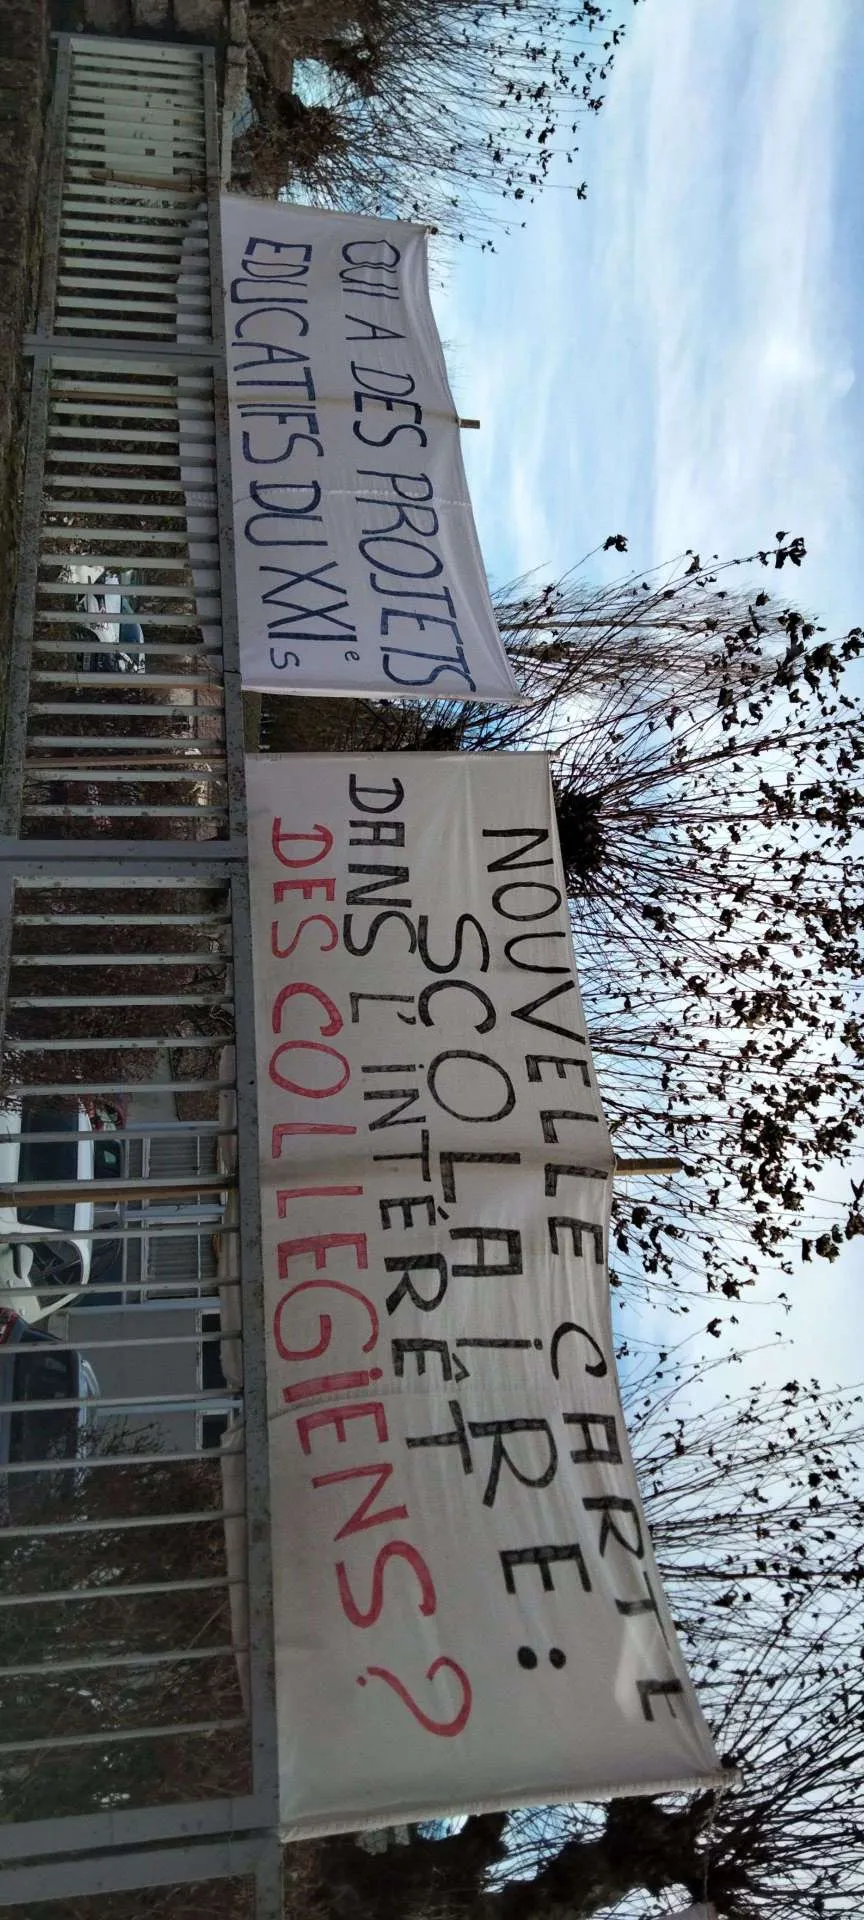 OUI A DES PROJETS
EDUCATIFS DU XXIe s
NOUVELLE CARTE
SCOLAiRE :
DANS L'iNTÉRÊT
DES COLLEGiENS ?